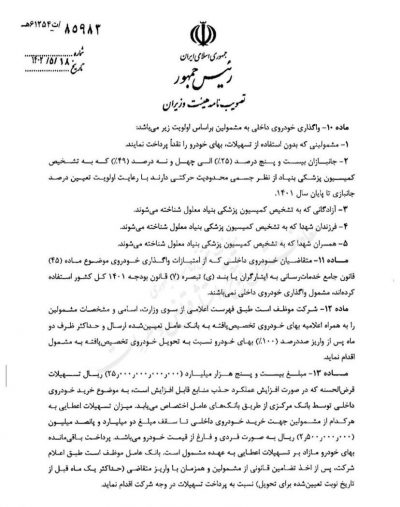 ۸۵۹۸۲/ت۶۱۲۵۴هـ
شماره
۱۴۰۲/۵/۱۸
تاریخ
جمهوری اسلامی ایران
رئیس جمهور
تصویب نامه هیئت وزیران
ماده ۱۰- واگذاری خودروی داخلی به مشمولین براساس اولویت زیر می‌باشد:
۱- مشمولینی که بدون استفاده از تسهیلات، بهای خودرو را نقداً پرداخت نمایند.
۲- جانبازان بیست و پنج درصد (۲۵٪) الی چهل و نه درصد (۴۹٪) که به تشخیص
کمیسیون پزشکی بنیاد از نظر جسمی محدودیت حرکتی دارند با رعایت اولویت تعیین درصد
جانبازی تا پایان سال ۱۴۰۱.
۳- آزادگانی که به تشخیص کمیسیون پزشکی بنیاد معلول شناخته می‌شوند.
۴- فرزندان شهدا که به تشخیص کمیسیون پزشکی بنیاد معلول شناخته می‌شوند.
۵- همسران شهدا که به تشخیص کمیسیون پزشکی بنیاد معلول شناخته می‌شوند.
ماده ۱۱- متقاضیان خودروی داخلی که از امتیازات واگذاری خودروی موضوع ماده (۴۵)
قانون جامع خدمات‌رسانی به ایثارگران یا بند (ی) تبصره (۷) قانون بودجه ۱۴۰۱ کل کشور استفاده
کرده‌اند، مشمول واگذاری خودروی داخلی نمی‌باشند.
ماده ۱۲- شرکت موظف است طبق فهرست اعلامی از سوی وزارت، اسامی و مشخصات مشمولین
را به همراه اعلامیه بهای خودروی تخصیص‌یافته به بانک عامل تعیین‌شده ارسال و حداکثر ظرف دو
ماه پس از واریز صددرصد (۱۰۰٪) بهای خودرو نسبت به تحویل خودروی تخصیص‌یافته به مشمول
اقدام نماید.
ماده ۱۳- مبلغ بیست و پنج هزار میلیارد (۲۵,۰۰۰,۰۰۰,۰۰۰,۰۰۰) ریال تسهیلات
قرض‌الحسنه که در صورت افزایش عملکرد جذب منابع قابل افزایش است، به موضوع خرید خودروی
داخلی توسط بانک مرکزی از طریق بانک‌های عامل اختصاص می‌یابد. میزان تسهیلات اعطایی به
هرکدام از مشمولین جهت خرید خودروی داخلی تا سقف مبلغ دو میلیارد و پانصد میلیون
(۲,۵۰۰,۰۰۰,۰۰۰) ریال به صورت فردی و فارغ از قیمت خودرو می‌باشد. پرداخت باقی‌مانده
بهای خودرو مازاد بر تسهیلات اعطایی به عهده مشمول است. بانک عامل موظف است طبق اعلام
شرکت، پس از اخذ تضامین قانونی از مشمولین و همزمان با واریز متقاضی (حداکثر یک ماه قبل از
تاریخ نوبت تعیین‌شده برای تحویل) نسبت به پرداخت تسهیلات در وجه شرکت اقدام نماید.